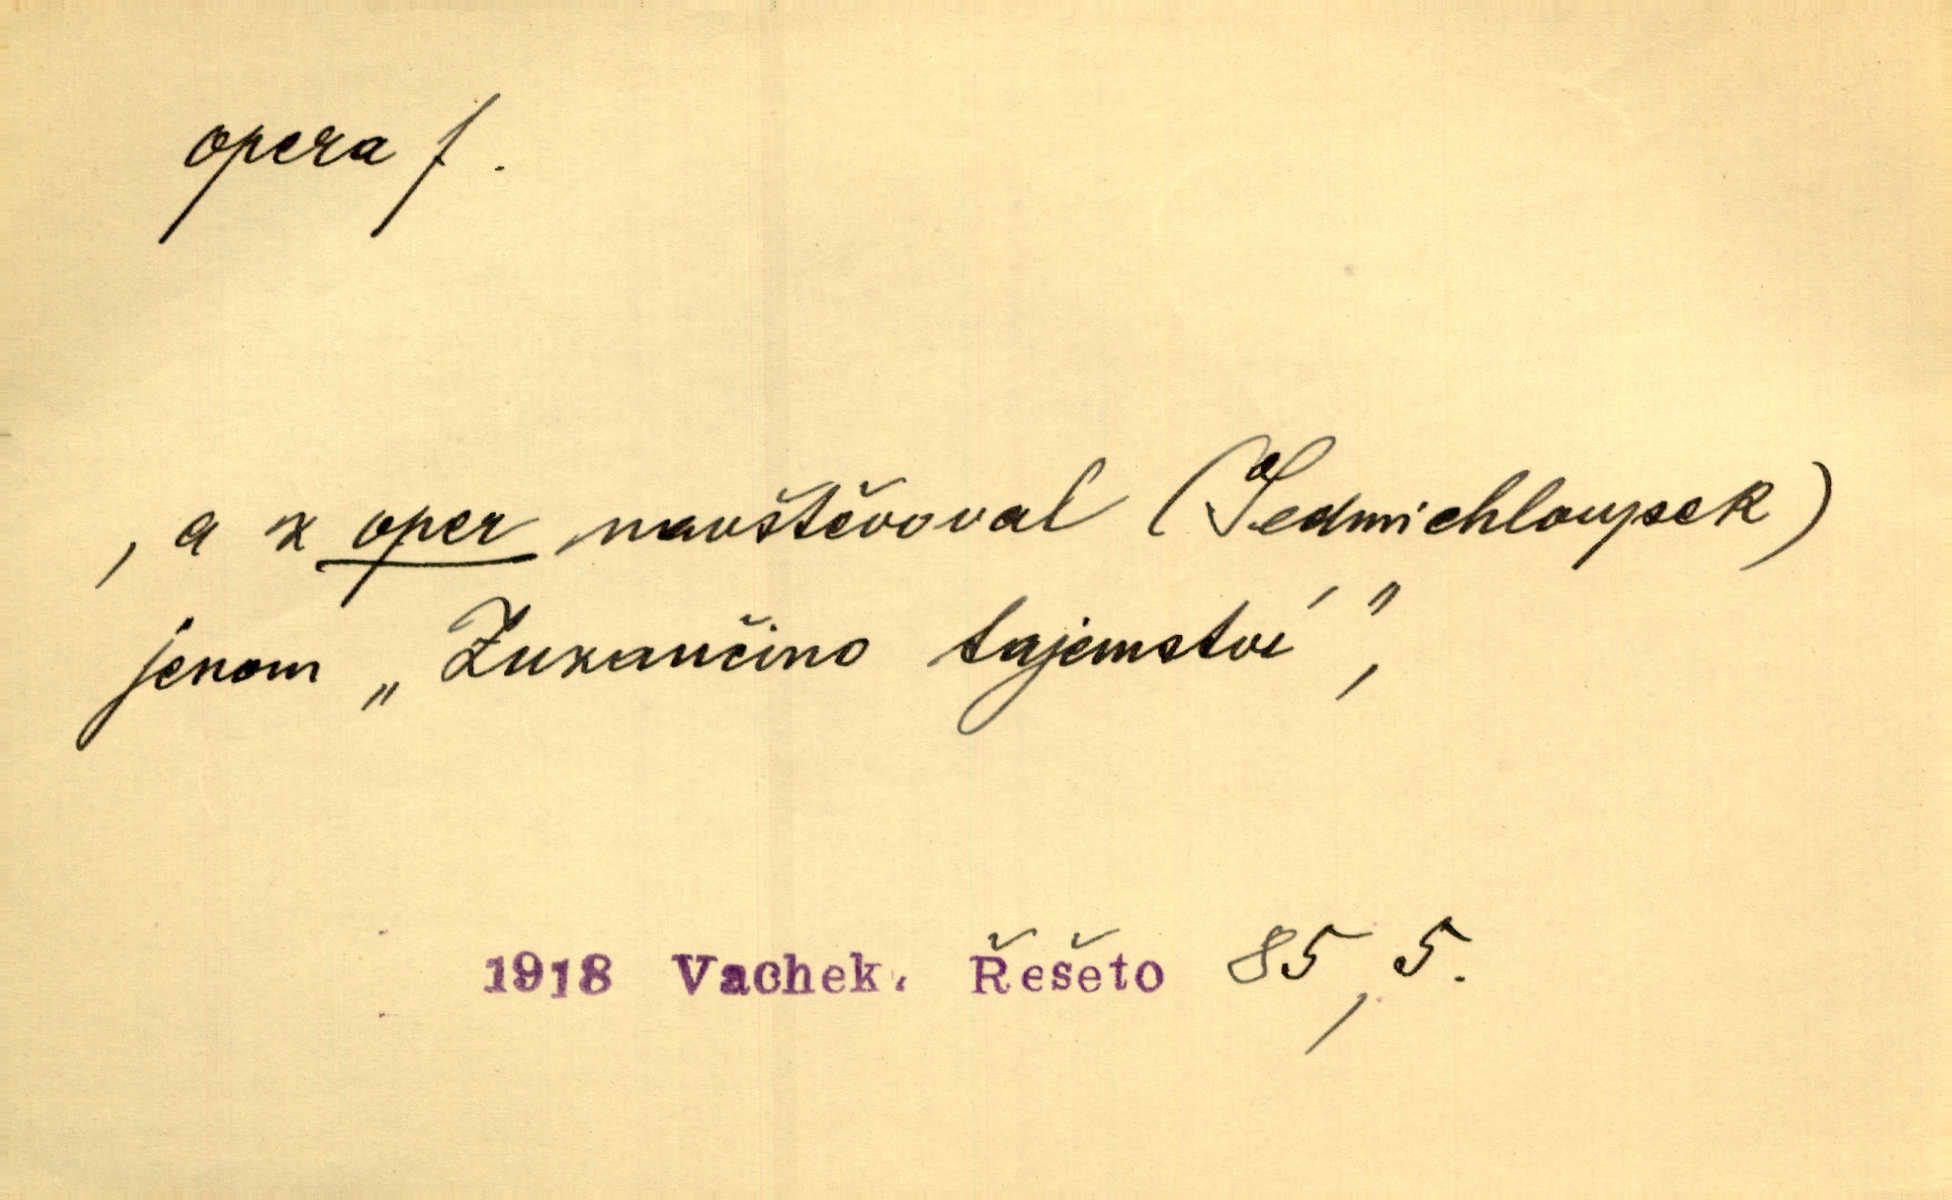 opera f.
, a z oper navštěvoval (Sedmichloupek)
jenom „Zuzančino tajemství”,
1918 Vachek. Řešeto 85, 5.